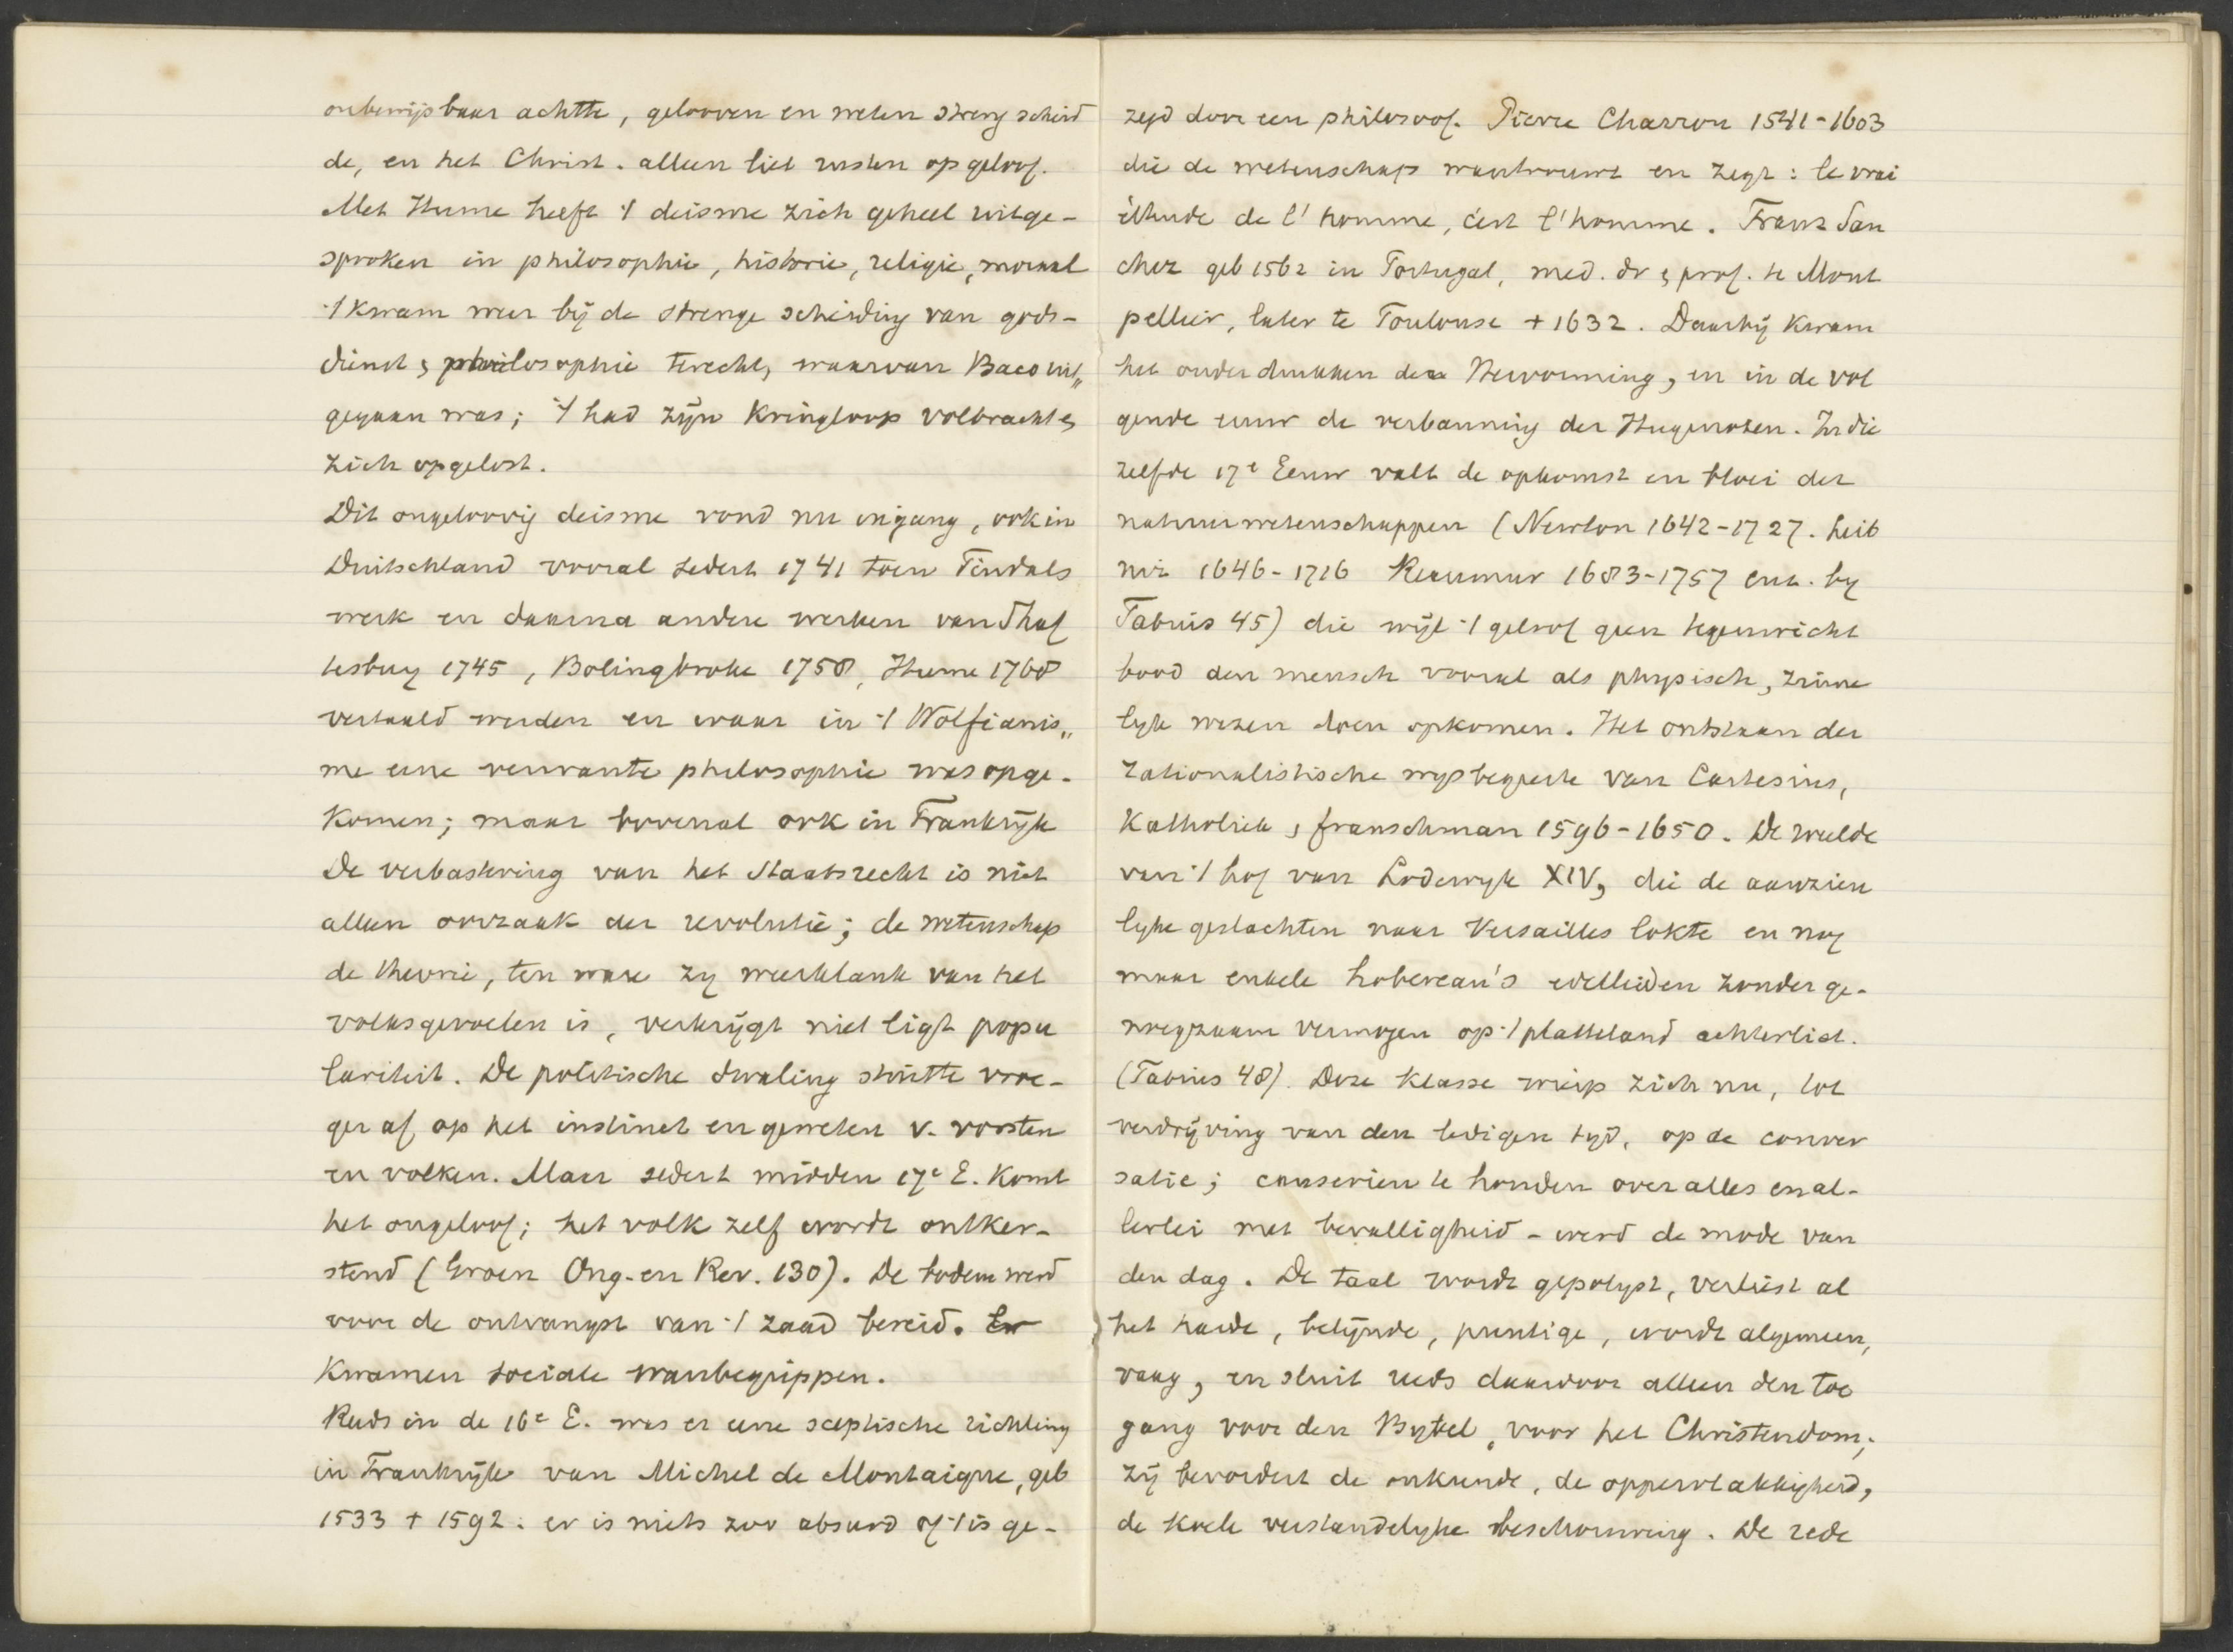 onbewijsbaar achtte, gelooven en weten streng scheid
de, en het Christ. alleen liet rusten op geloof.
Met Hume heeft 't deisme zich geheel uitge-
sproken in philosophie, historie, religie, moraal
't kwam weer bij de strenge scheiding van gods-
dienst & philosophie terecht, waarvan Baco uit„
gegaan was; 't had zijn Kringloop volbracht &
zich opgelost.
Dit ongeloovig deisme vond nu ingang, ook in
Duitschland vooral sedert 1741 toen Tindals
werk en daarna andere werken van Shaf
tesbury 1745, Bolingbroke 1758, Hume 1768
vertaald werden en waar in 't Wolfianis„
me eene verwante philosophie was opge-
Komen; maar bovenal ook in Frankrijk
De verbastering van het Staatsrecht is niet
alleen oorzaak der revolutie; de wetenschap
de theorie, ten ware zy weerklank van het
volksgevoelen is, verkrijgt niet ligt popu
lariteit. De politische dwaling stuitte vroe-
ger af op het instinct en geweten v. vorsten
en volken. Maar sedert midden 17e E. Komt
het ongeloof; het volk zelf wordt ontker-
stend (Groen Ong. en Rev. 130). De bodem werd
voor de ontvangst van 't zaad bereid. Er
Kwamen sociale wanbegrippen.
Reeds in de 16e E. was er eene sceptische richting
in Frankrijk van Michel de Montaigne, geb
1533 + 1592: er is niets zoo absurd of 't is ge-
zegd door een philosoof. Pierre Charron 1541-1603
die de wetenschap wantrouwt en zegt: le vrai
étude de l'homme, c'est l'homme. Franz San
chez geb 1562 in Portugal, med. dr & prof. te Mont
pellier, later te Toulouse + 1632. Daarbij kwam
het onderdrukken der Hervorming, en in de vol
gende eeuw de verbanning der Hugenoten. In die
zelfde 17e Eeuw valt de opkomst en bloei der
natuurwetenschappen (Newton 1642-1727. Leib
niz 1646-1716 Reaumur 1683-1757 enz. by
Tabnis 45) die wijl 't geloof geen tegenwicht
bood den mensch vooral als physisch, zinne
lyk wezen doen opkomen. Het ontstaan der
rationalistische wysbegeerte van Cartesius,
Katholiek & franschman 1596-1650. De weelde
van 't hof van Lodewyk XIV, die de aanzien
lyke geslachten naar Versailles lokte en nog
maar enkele hobereau's edellieden zonder ge-
noegzaam vermogen op 't platteland achterliet.
(Tabnis 48). Deze Klasse wierp zich nu, tot
verdrijving van den ledigen tyd, op de conver
satie; causerien te houden over alles en al-
lerlei met bevalligheid - werd de mode van
den dag. De taal wordt gepolyst, verliest al
het harde, belijnde, puntige, wordt algemeen,
vaag, en sluit reeds daardoor alleen den toe
gang voor den Bybel, voor het Christendom;
zij bevordert de onkunde, de oppervlakkigheid,
de koele verstandelyke beschouwing. De rede